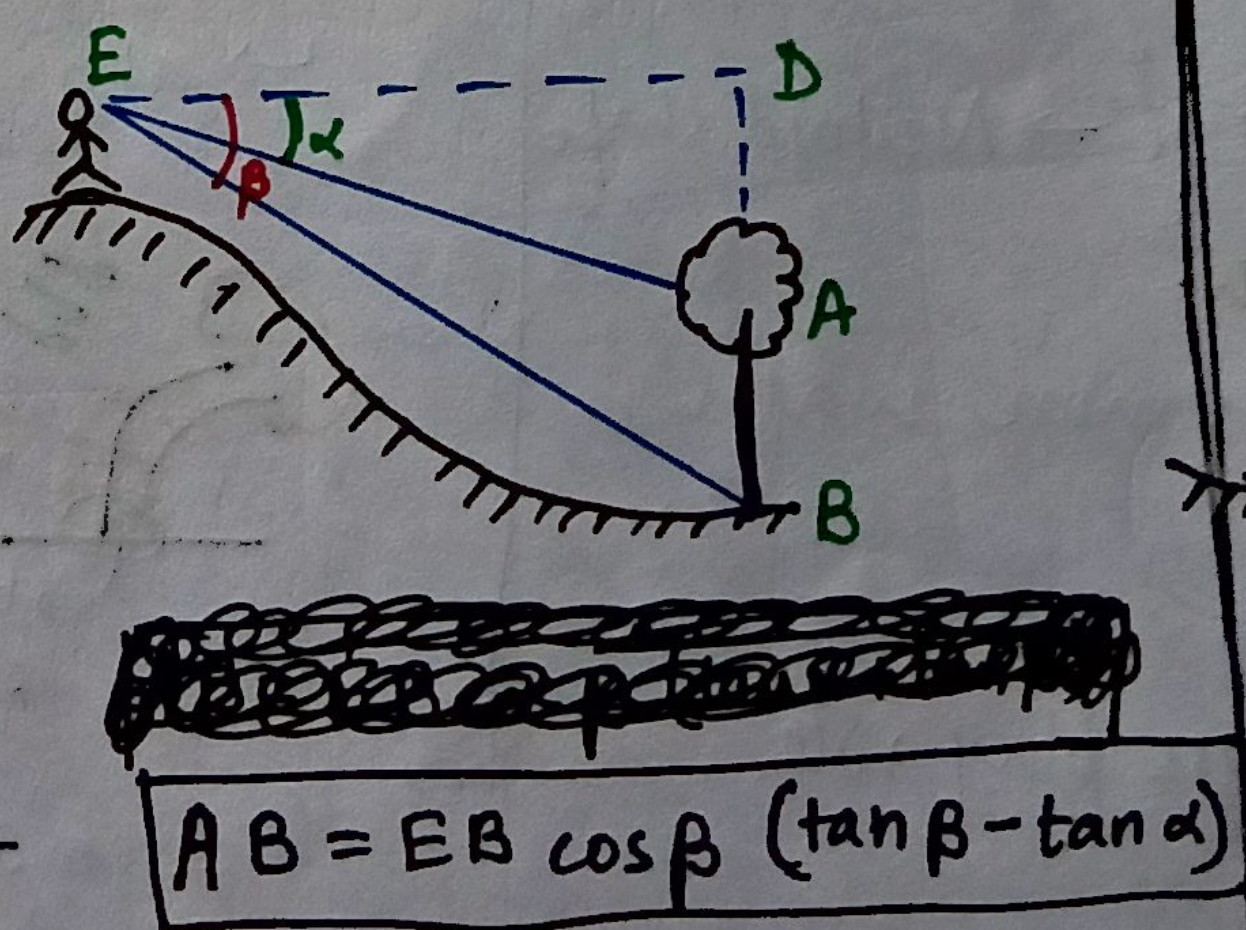 E
D
α
β
A
B
AB = EB cos β (tan β - tan α)